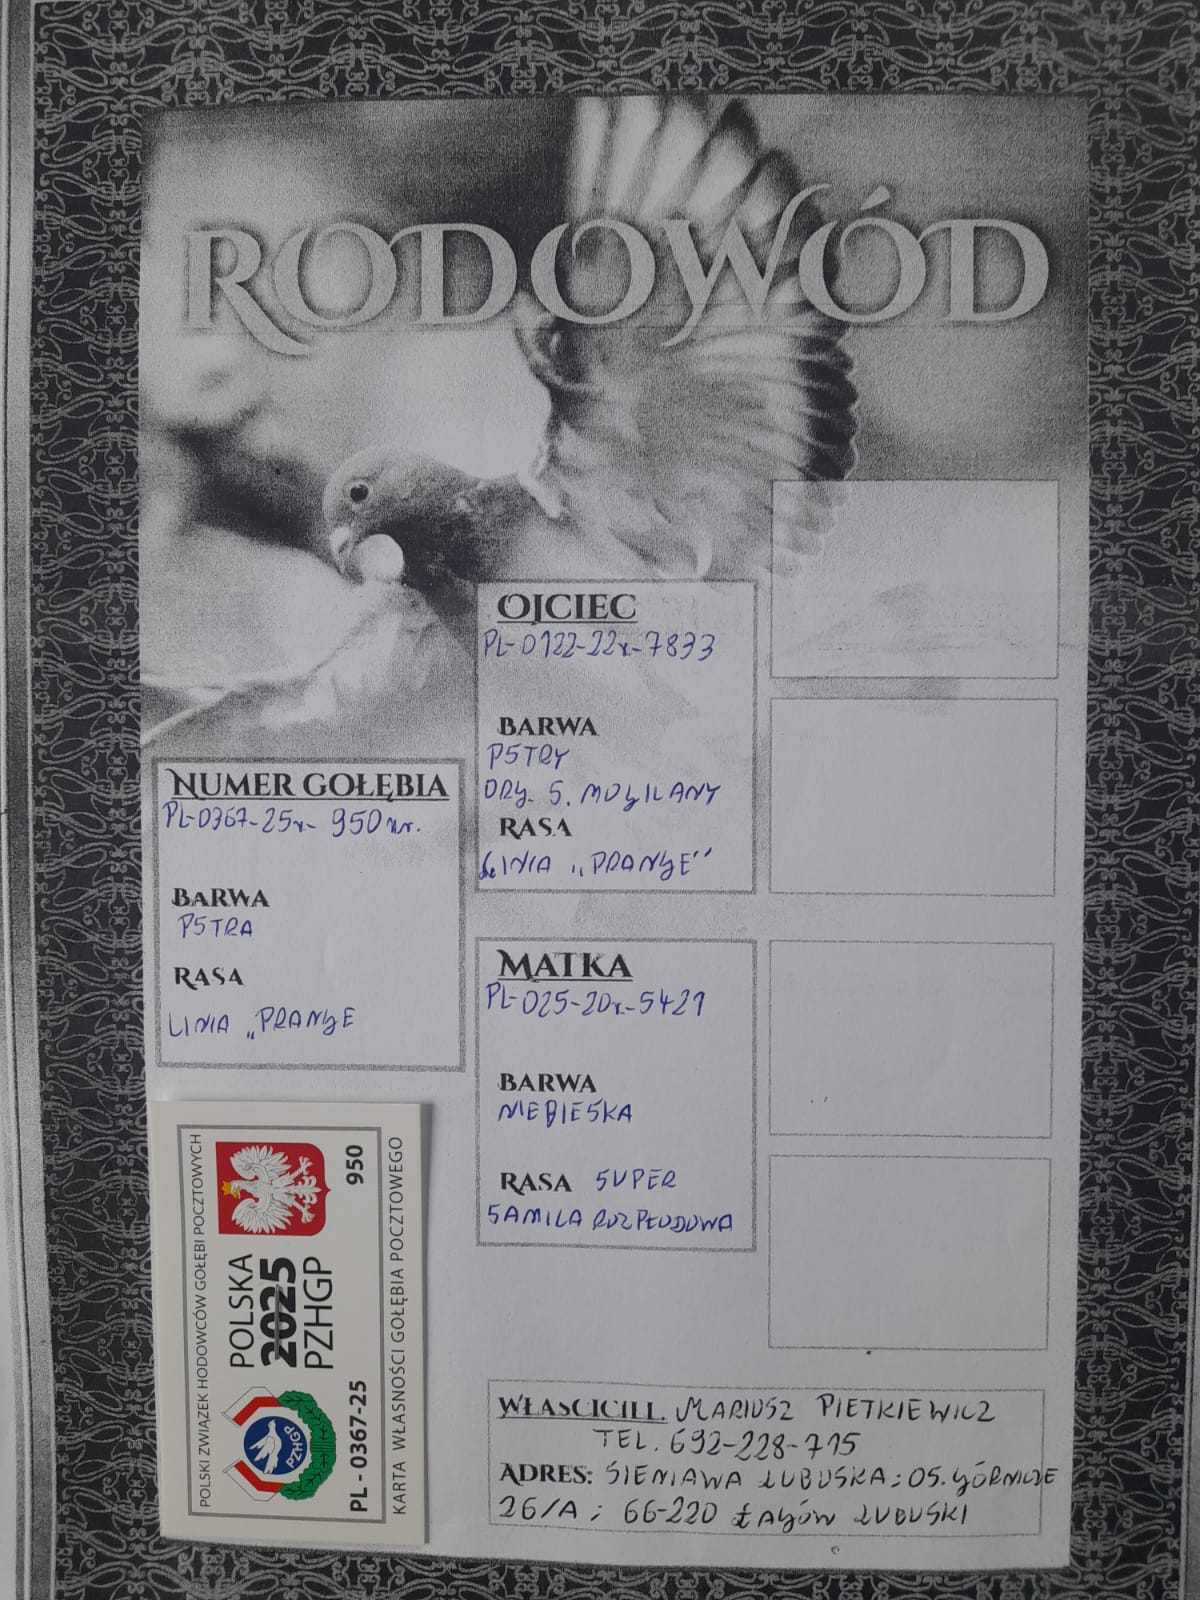 RODOWÓD
OJCIEC
PL-0122-22r-7833
BARWA
PSTRY
ORY. S. MOGILANY
RASA
LINIA „PRANGE”
NUMER GOŁĘBIA
PL-0367-25r- 950 nr.
BARWA
PSTRA
RASA
LINIA „PRANGE
MATKA
PL-025-20r-5421
BARWA
NIEBIESKA
RASA SUPER
SAMICA ROZPŁODOWA
POLSKI ZWIĄZEK HODOWCÓW GOŁĘBI POCZTOWYCH
POLSKA
2025
PZHGP
950
PZHGP
PL - 0367-25
KARTA WŁASNOŚCI GOŁĘBIA POCZTOWEGO
WŁAŚCICIEL MARIUSZ PIETKIEWICZ
TEL. 692-228-715
ADRES: SIENIAWA LUBUSKA: OS. GÓRNICZE
26/A ; 66-220 ŁAGÓW LUBUSKI